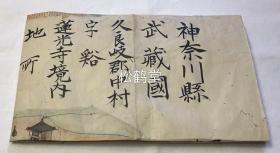 神奈川縣
武藏國
久良岐郡中村
字谿
蓮光寺境内
地所
松鹤堂